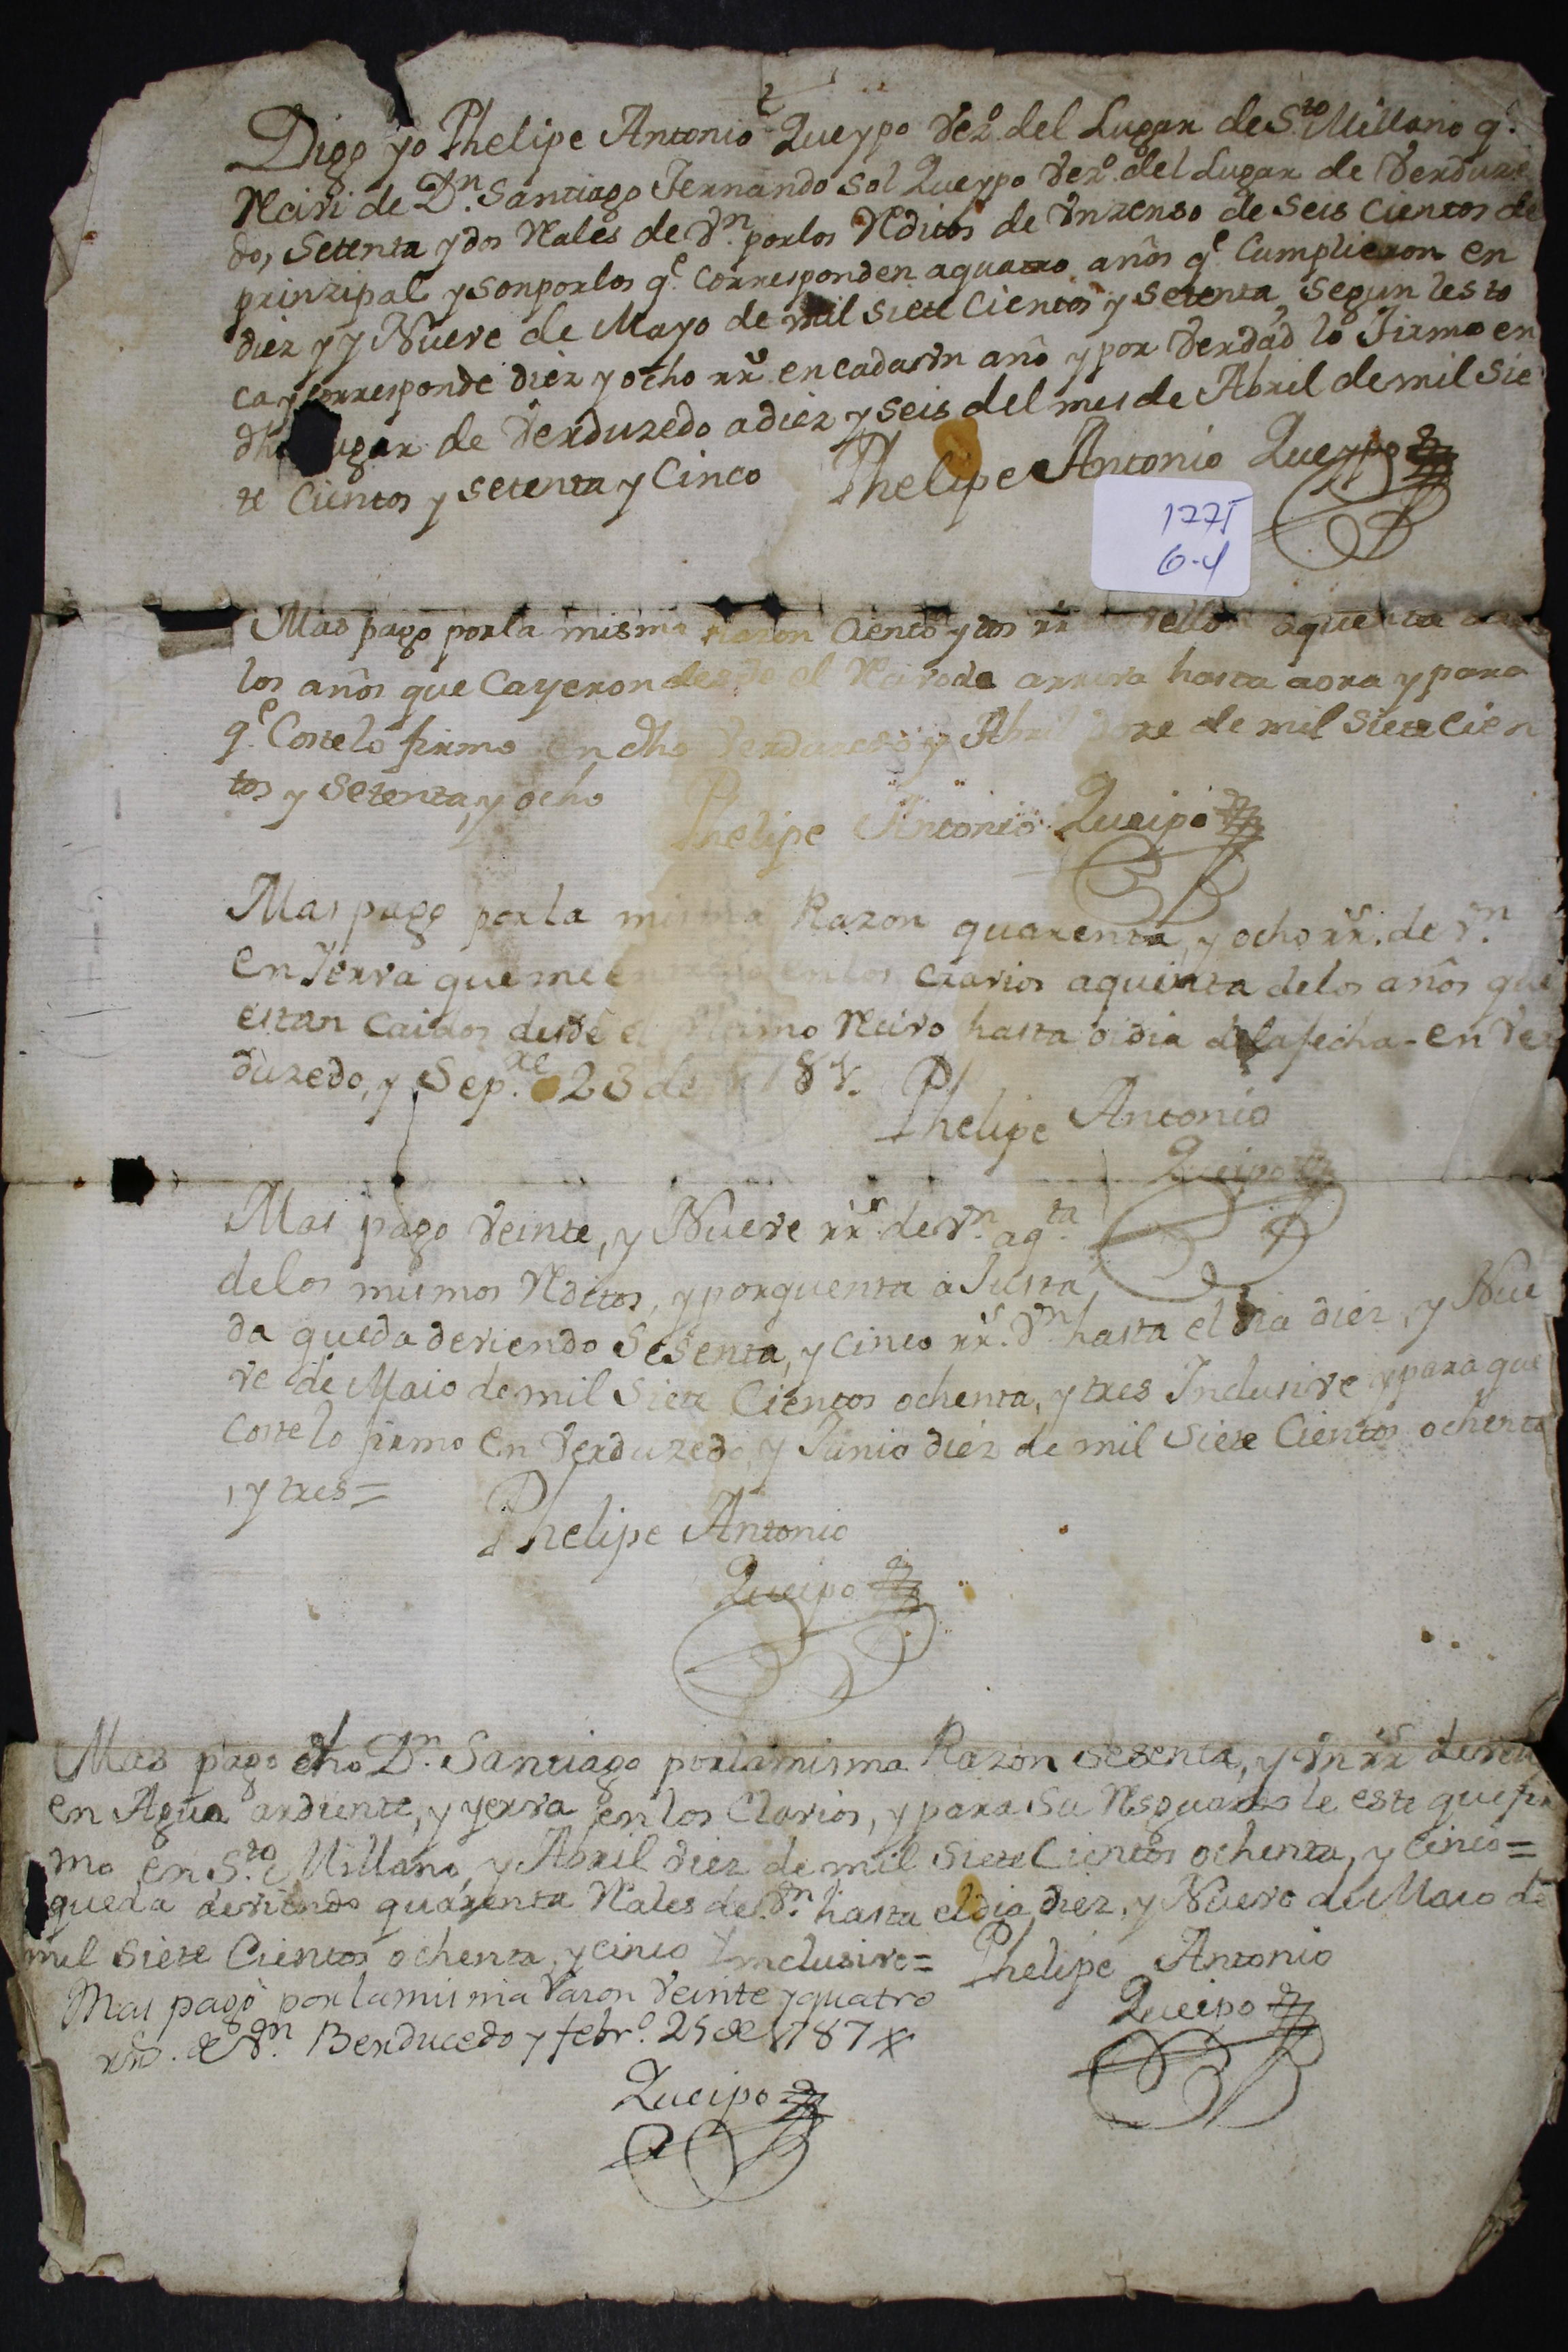 Digo yo Phelipe Antonio Queypo Vezº del Lugar de Sto Millano q.e
Reciví de Dn. Santiago Fernando Sol Queypo Vezº del Lugar de Verduze
do, Setenta y dos Rales de Vn. por los Rditos de Vn zenso de Seis Cientos de
prinzipal y son por los q.e Corresponden a quatro años q.e Cumplieron en
diez y y Nueve de Mayo de mil Siete Cientos y Setenta, Segun lesto
ca y corresponde diez y ocho rrs. en cada vn año y por Verdad lo Firmo en
dho ugar de Verduzedo a diez y seis del mes de Abril de mil Sie
te Cientos y setenta y Cinco Phelipe Antonio Queypo
1775
6-4
Mas pago por la misma razon Ciento y dos rrs vellon aquenta
los años que Cayeron desde el Recivo de arriva hasta aora y para
q.e Coste lo firmo en dho Verduzedo y Abril doze de mil Siete Cien
tos y Setenta, y ocho Phelipe Antonio Queipo
Mas pago por la misma Razon quarenta, y ocho rrs. de Vn.
en Yerva que me en los Clarios aquenta de los años que
estan Caidos desde el Recivo hasta oi dia de la fecha - en Ver
duzedo, y Sep.re 23 de 178
Phelipe Antonio
Queipo
Mas pago Veinte, y Nueve rrs. de Vn. aqta
de los mismos Rditos, y por quenta a Justa
da queda deviendo Sesenta, y Cinco rrs. Vn. hasta el dia diez, y Nue
ve de Maio de mil Siete Cientos ochenta, y tres Inclusive y para que
Coste lo firmo en Verduzedo, y Junio diez de mil Siete Cientos ochenta
, y tres =
Phelipe Antonio
Queipo
Mas pago dho Dn. Santiago por la misma Razon setenta, y vn rrs de vellon
en Agua ardiente, y yerva en los Clarios, y para Su Resguardo le este que fir
mo en Sto. Millano, y Abril diez de mil Siete Cientos ochenta, y Cinco =
queda deviendo quarenta Rales de Vn. hasta el dia diez, y Nueve de Maio de
mil Siete Cientos ochenta, y cinco Inclusive = Phelipe Antonio
Queipo
Mas pagó por la misma razon Veinte y quatro
rrs. de Vn. Berducedo y febrº. 25 de 1787
Queipo